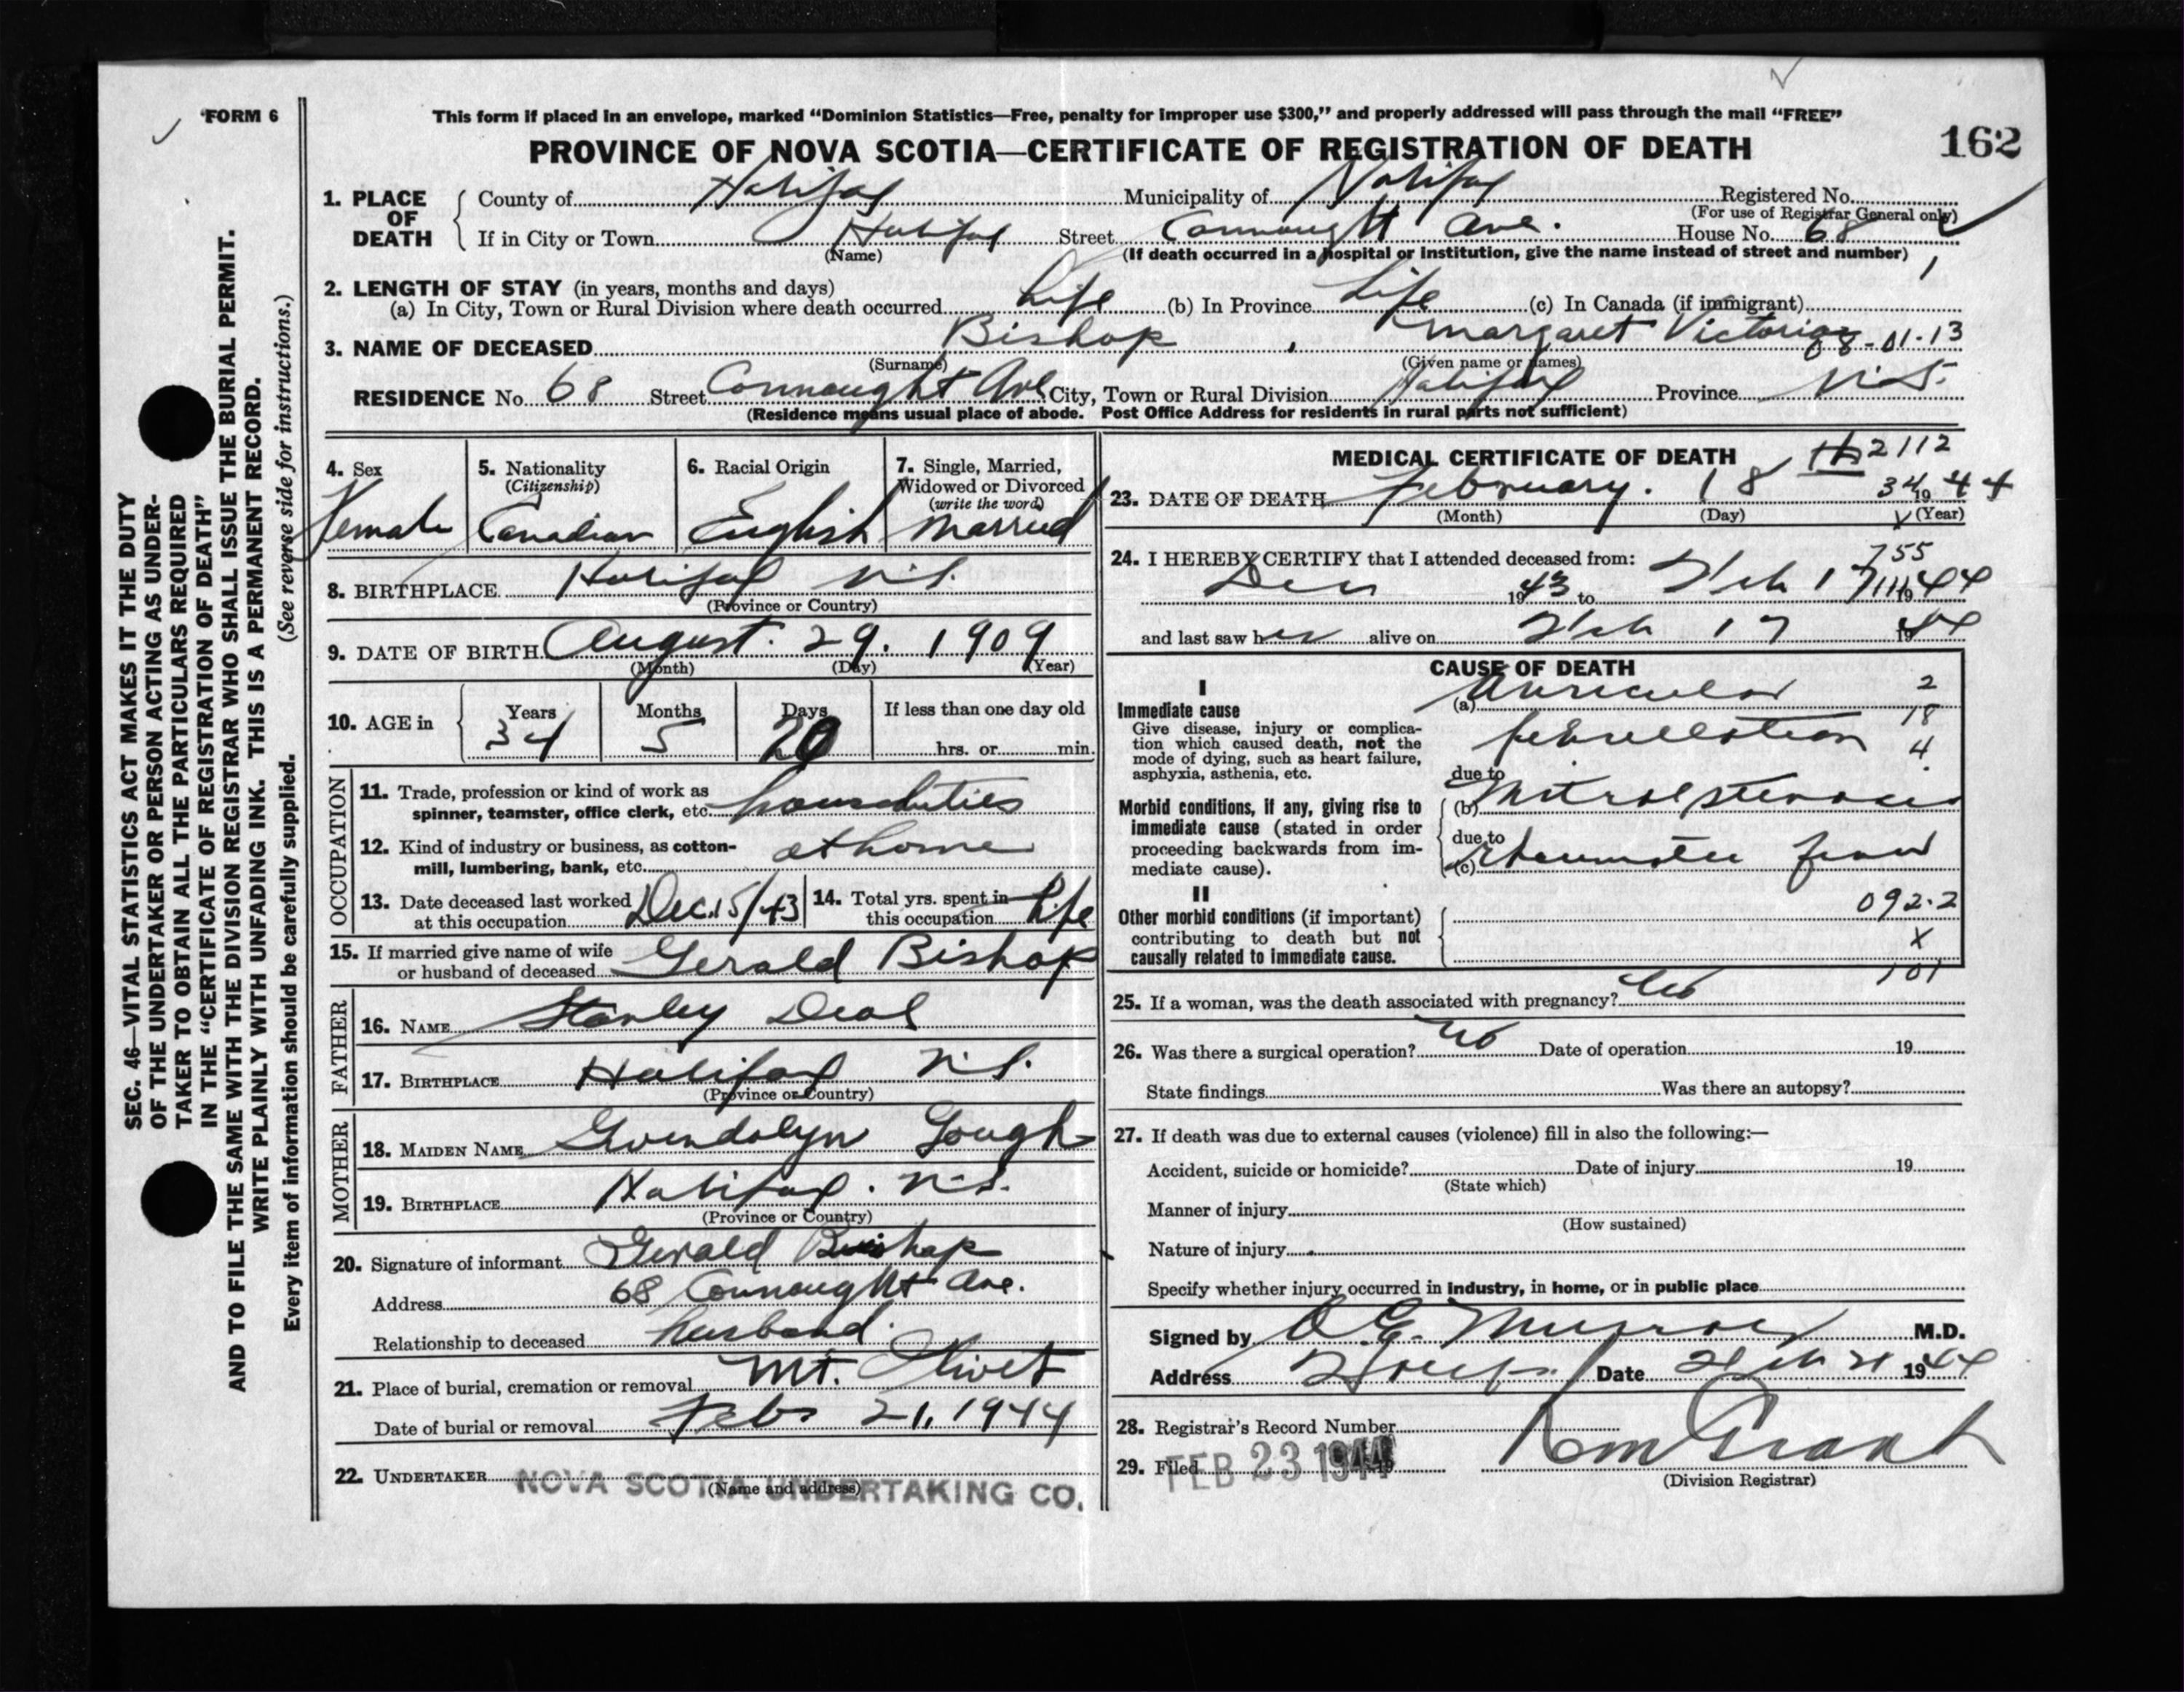 FORM 6
This form if placed in an envelope, marked “Dominion Statistics—Free, penalty for improper use $300,” and properly addressed will pass through the mail “FREE”
PROVINCE OF NOVA SCOTIA—CERTIFICATE OF REGISTRATION OF DEATH 162
1. PLACE OF DEATH County of Halifax Municipality of Halifax Registered No.
(For use of Registrar General only)
If in City or Town Halifax Street Connaught Ave. House No. 68
(Name) (If death occurred in a hospital or institution, give the name instead of street and number) 1
2. LENGTH OF STAY (in years, months and days)
(a) In City, Town or Rural Division where death occurred Life (b) In Province Life (c) In Canada (if immigrant)
3. NAME OF DECEASED Bishop , Margaret Victoria 08-01-13
(Surname) (Given name or names)
RESIDENCE No. 68 Street Connaught Ave City, Town or Rural Division Halifax Province N.S.
(Residence means usual place of abode. Post Office Address for residents in rural parts not sufficient)
SEC. 46—VITAL STATISTICS ACT MAKES IT THE DUTY
OF THE UNDERTAKER OR PERSON ACTING AS UNDER-
TAKER TO OBTAIN ALL THE PARTICULARS REQUIRED
IN THE “CERTIFICATE OF REGISTRATION OF DEATH”
AND TO FILE THE SAME WITH THE DIVISION REGISTRAR WHO SHALL ISSUE THE BURIAL PERMIT.
WRITE PLAINLY WITH UNFADING INK. THIS IS A PERMANENT RECORD.
Every item of information should be carefully supplied. (See reverse side for instructions.)
4. Sex 5. Nationality 6. Racial Origin 7. Single, Married,
(Citizenship) Widowed or Divorced
(write the word)
Female Canadian English Married
8. BIRTHPLACE Halifax N.S.
(Province or Country)
9. DATE OF BIRTH August. 29. 1909
(Month) (Day) (Year)
10. AGE in Years Months Days If less than one day old
34 5 20 hrs. or min.
OCCUPATION
11. Trade, profession or kind of work as
spinner, teamster, office clerk, etc. houseduties
12. Kind of industry or business, as cotton-
mill, lumbering, bank, etc. at home
13. Date deceased last worked at this occupation Dec. 15/43 14. Total yrs. spent in this occupation Life
15. If married give name of wife
or husband of deceased Gerald Bishop
FATHER
16. NAME Stanley Deal
17. BIRTHPLACE Halifax N.S.
(Province or Country)
MOTHER
18. MAIDEN NAME Gwendolyn Gough
19. BIRTHPLACE Halifax. N.S.
(Province or Country)
20. Signature of informant Gerald Bishop
Address 68 Connaught Ave.
Relationship to deceased husband.
21. Place of burial, cremation or removal Mt. Olivet
Date of burial or removal Feb 21, 1944
22. UNDERTAKER NOVA SCOTIA UNDERTAKING CO.
(Name and address)
MEDICAL CERTIFICATE OF DEATH 2112
23. DATE OF DEATH February. 18 34 19 44
(Month) (Day) (Year)
24. I HEREBY CERTIFY that I attended deceased from: 755
Dec 1943 to Feb 17 1944
and last saw her alive on Feb 17 1944
CAUSE OF DEATH
I
Immediate cause (a) Auricular 2
Give disease, injury or complica-
tion which caused death, not the
mode of dying, such as heart failure,
asphyxia, asthenia, etc. fibrillation 18
4
due to
Morbid conditions, if any, giving rise to (b) Mitral stenosis
immediate cause (stated in order
proceeding backwards from im-
mediate cause). due to
(c) Rheumatic fever
II
Other morbid conditions (if important) 092.2
contributing to death but not X
causally related to immediate cause. 101
25. If a woman, was the death associated with pregnancy? No
26. Was there a surgical operation? No Date of operation 19
State findings Was there an autopsy?
27. If death was due to external causes (violence) fill in also the following:—
Accident, suicide or homicide? Date of injury 19
(State which)
Manner of injury
(How sustained)
Nature of injury
Specify whether injury occurred in industry, in home, or in public place
Signed by Munroe M.D.
Address Date Feb 21 1944
28. Registrar's Record Number
29. Filed FEB 23 1944 Grant
(Division Registrar)